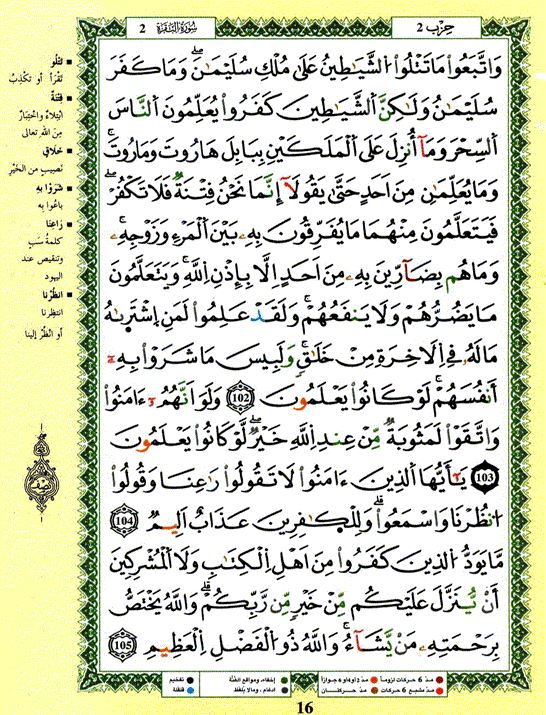 حِزْب 2
سُورَةُ البَقَرَة 2
وَاتَّبَعُوا مَا تَتْلُوا الشَّيَاطِينُ عَلَىٰ مُلْكِ سُلَيْمَٰنَ وَمَا كَفَرَ
سُلَيْمَٰنُ وَلَٰكِنَّ الشَّيَاطِينَ كَفَرُوا يُعَلِّمُونَ النَّاسَ
السِّحْرَ وَمَا أُنزِلَ عَلَى الْمَلَكَيْنِ بِبَابِلَ هَارُوتَ وَمَارُوتَ
وَمَا يُعَلِّمَٰنِ مِنَ اَحَدٍ حَتَّىٰ يَقُولَا إِنَّمَا نَحْنُ فِتْنَةٌ فَلَا تَكْفُرْ
فَيَتَعَلَّمُونَ مِنْهُمَا مَا يُفَرِّقُونَ بِهِ بَيْنَ الْمَرْءِ وَزَوْجِهِ
وَمَا هُم بِضَآرِّينَ بِهِ مِنَ اَحَدٍ اِلَّا بِإِذْنِ اللَّهِ وَيَتَعَلَّمُونَ
مَا يَضُرُّهُمْ وَلَا يَنفَعُهُمْ وَلَقَدْ عَلِمُوا لَمَنِ اِشْتَرَىٰهُ
مَا لَهُ فِي اِلَاخِرَةِ مِنْ خَلَٰقٍ وَلَبِيسَ مَا شَرَوْا بِهِ
أَنفُسَهُمْ لَوْ كَانُوا يَعْلَمُونَ 102 وَلَوَ اَنَّهُمُ ءَامَنُوا
وَاتَّقَوْا لَمَثُوبَةٌ مِّنْ عِندِ اللَّهِ خَيْرٌ لَّوْ كَانُوا يَعْلَمُونَ
103 يَٰأَيُّهَا الَّذِينَ ءَامَنُوا لَا تَقُولُوا رَٰعِنَا وَقُولُوا
اُنظُرْنَا وَاسْمَعُوا وَلِلْكَٰفِرِينَ عَذَابٌ اَلِيمٌ 104
مَّا يَوَدُّ الَّذِينَ كَفَرُوا مِنَ اَهْلِ الْكِتَٰبِ وَلَا الْمُشْرِكِينَ
أَنْ يُّنَزَّلَ عَلَيْكُم مِّنْ خَيْرٍ مِّن رَّبِّكُمْ وَاللَّهُ يَخْتَصُّ
بِرَحْمَتِهِ مَنْ يَّشَآءُ وَاللَّهُ ذُو الْفَضْلِ الْعَظِيمِ 105
تَتْلُو
تَقْرَأُ أو تَكْذِبُ
فِتْنَةٌ
ابتلاءٌ واختبارٌ
من الله تعالى
خَلَاقٍ
نصيبٍ من الخَيْرِ
شَرَوْا بِهِ
باعُوا به
رَاعِنَا
كلمةُ سَبٍّ
وتنقيصٍ عند
اليهود
انظُرْنَا
انتظِرنا
أو انْظُرْ إلينا
نصف
مدّ 6 حركات لزوماً
مدّ 2 أو 4 أو 6 جوازاً
إخفاء، ومواقع الغُنَّة
تفخيم
مدّ مشبع 6 حركات
مدّ حركتان
ادغام، وما لا يُلفظ
قلقلة
16